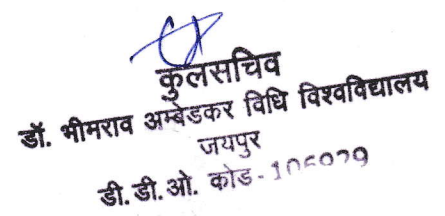 कुलसचिव
डॉ. भीमराव अम्बेडकर विधि विश्वविद्यालय
जयपुर
डी. डी. ओ. कोड-